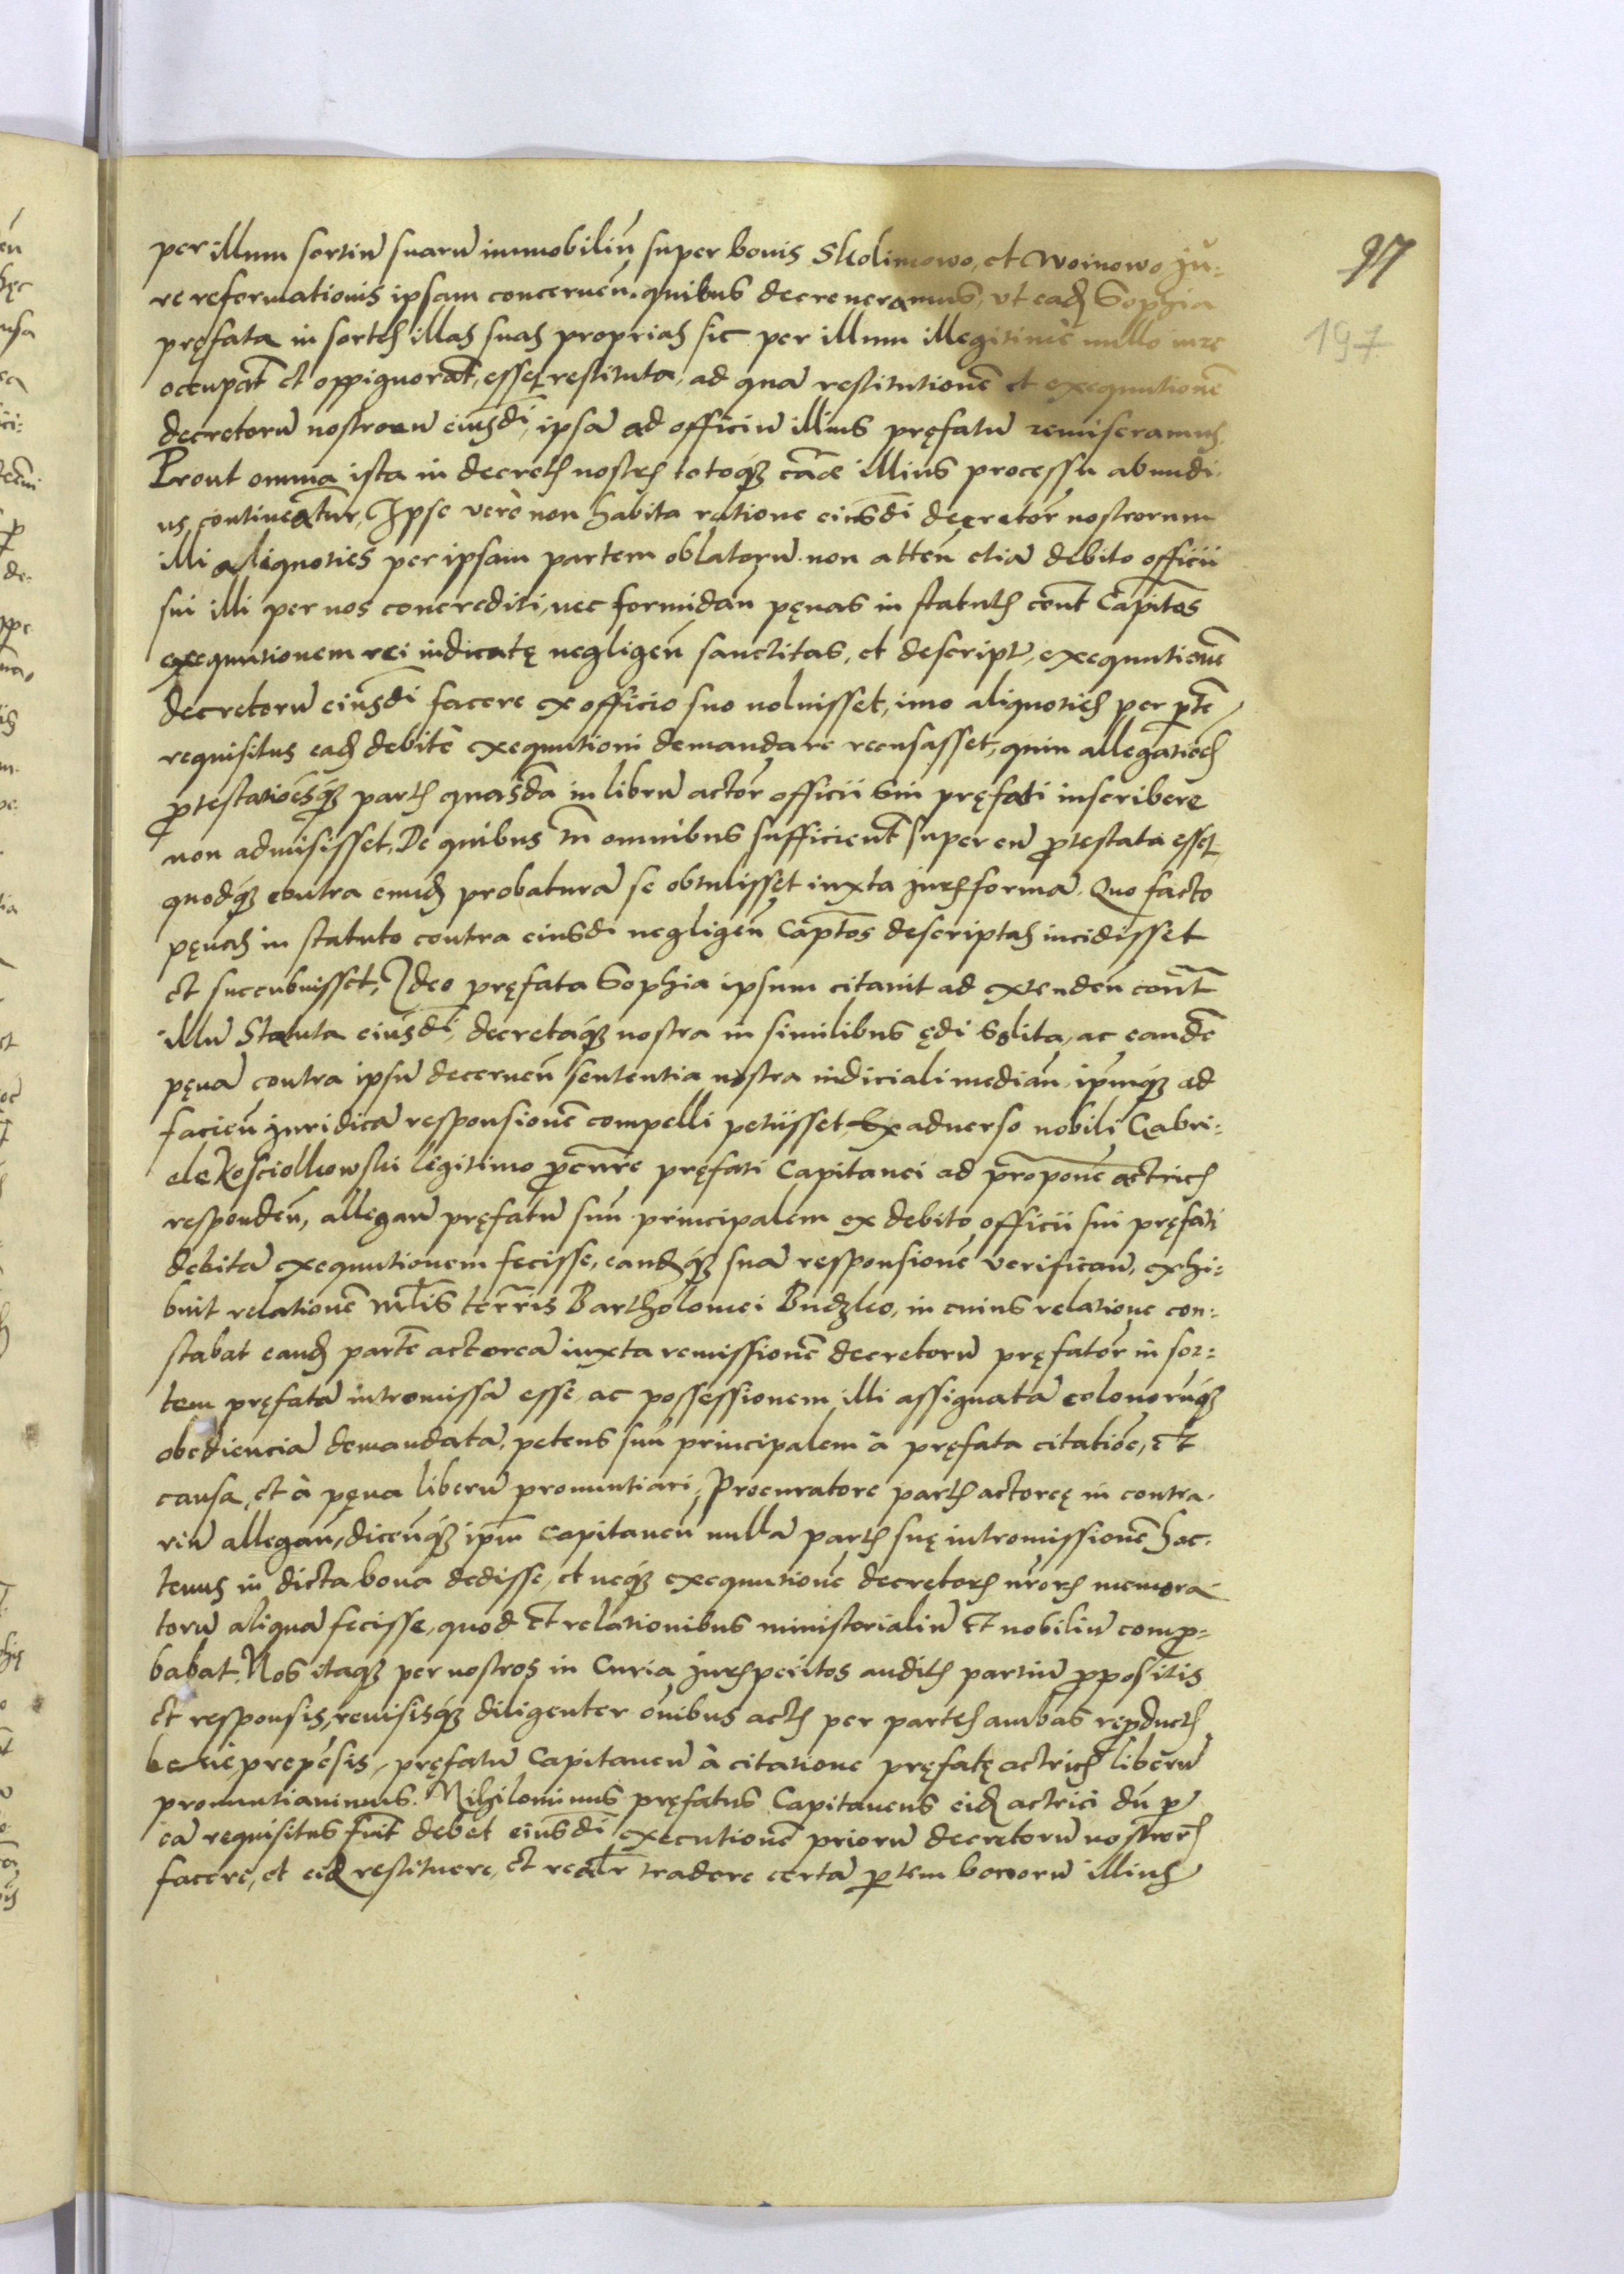 97
197
per illum sortiū suarū immobiliū super bonis Skolimowo, et Woinowo ju⸗
re reformationis ipsam concernēn. quibus decreueramus, ut eadē Sophia
pręfata in sortes illas suas proprias sic per illum illegitimè nullo iure
occupat̄ et oppignorat̄, esset restituta, ad quā restitutionē et exequutionē
decretorū nostrorū eiusdī, ipsā ad officiū illius pręfatū remiseramus.
Prout omnia ista in decretis nostris totoq́ꝫ cāae illius processu abundi⸗
us continentur, Ipse verò non habita ratione eiusdī decretor̄ nostrorum
illi aliquoties per ipsam partem oblatorū. non attēn etiā debito officii
sui illi per nos concrediti, nec formidan̄ pęnas in statutis cont̄ Capitōs
exequutionem rei iudicatę negligēn sancitas, et descript̄, exequutionē
decretorū eiusdī facere ex officio suo noluisset, imo aliquoties per ptē
requisitus eadē debitè exequutioni demandare recusasset, quin allegatiōes
ꝓtestatiōesq́ꝫ partis quasdā in librū actor̄ officii sui pręfati inscribere
non admisisset, De quibus tn̄ omnibus sufficient̄ super eū ꝓtestata esset,
quodq́ꝫ contra eundē probaturā se obtulisset iuxta juris formā. Quo facto
pęnas in statuto contra eiusdī negligēn Capt̄os descriptas incidisset
et succubuisset, Ideo pręfata Sophia ipsum citauit ad extendēn cont̄
illū Statuta eiusdī, decretaq́ꝫ nostra in similibus ędi solita, ac eandē
pęnā contra ipsū decernēn sententia nostra iudiciali mediān, ipm̄q́ꝫ ad
faciēn juridicā responsionē compelli petiisset, Ex aduerso nobili Gabri⸗
ele Kosciolkowski legitimo ꝓcurre pręfati Capitanei ad proponē actricis
respondēn, allegan̄ pręfatū suū principalem ex debito officii sui pręfati
debitā exequutionem fecisse, eandēq́ꝫ suā responsionē verifican̄, exhi⸗
buit relationē mlīs terr̄ris Bartholomei Budzko, in cuius relatione con⸗
stabat eandē partē actoreā iuxta remissionē decretorū pręfator̄ in sor⸗
tem pręfatā intromissā esse, ac possessionem illi assignatā colonorūq́ꝫ
obedienciā demandatā, petens suū principalem à pręfata citatiōe, et
causa, et à pęna liberū pronuntiari, Procuratore partis actoreę in contra⸗
riū allegan̄, dicēnq́ꝫ ipm̄ Capitaneū nullā partis suę intromissionē hac⸗
tenus in dicta bona dedisse, et neq́ꝫ exequutionē decretoris nr̄oris memora⸗
torū aliquā fecisse, quod et relationibus ministerialiū et nobiliū comꝓ⸗
babat. Nos itaq́ꝫ per nostros in Curia jurisperitos auditis partiū ꝓpositis
et responsis, reuisisq́ꝫ diligenter oīnibus actis per partes ambas reꝓductis
benè prepēsis, pręfatū Capitaneū à citatione pręfatę actricis liberū
pronuntiauimus. Nihilominus pręfatus Capitaneus eidē actrici dū ꝑ
eā requisitus fuit̄ debet eiusdī executionē priorū decretorū nostror̄
facere, et eid restituere, et realr̄ tradere certā ꝑtem bonorū illius